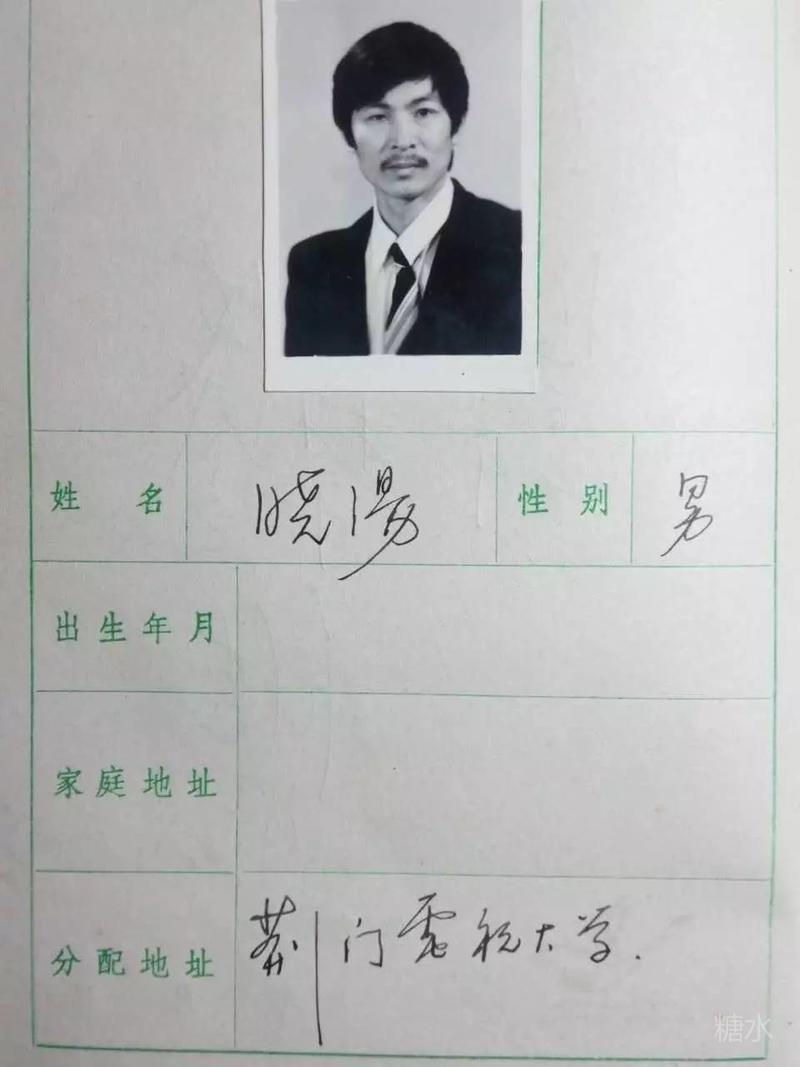 姓名 晓湯 性别 男
出生年月
家庭地址
分配地址 荆门电视大学.
糖水